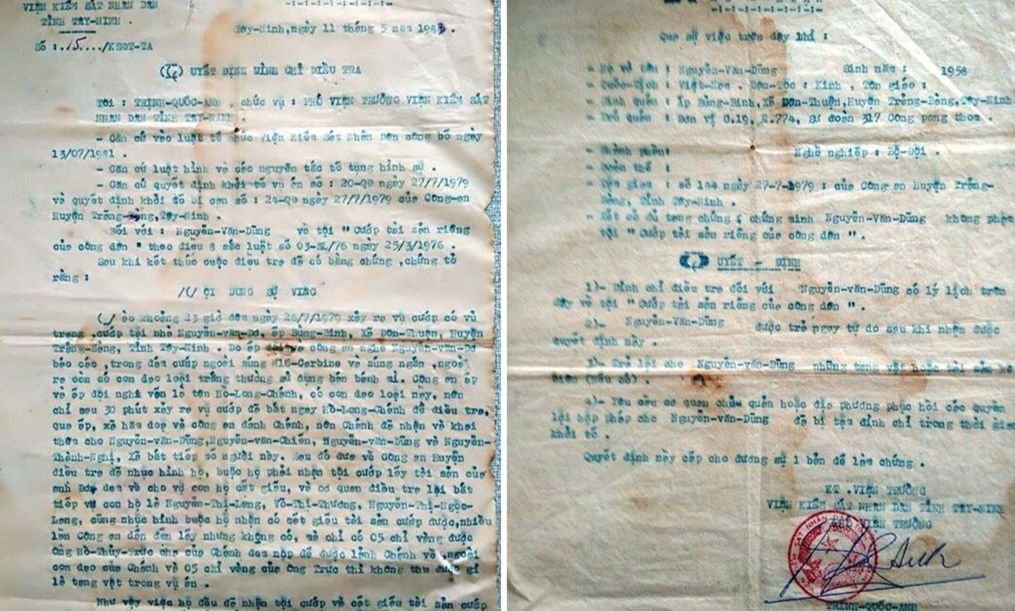 VIỆN KIỂM SÁT NHÂN DÂN
TỈNH TÂY-NINH.
Số :.15.../KSĐT-TA
Tây-Ninh, ngày 11 tháng 5 năm 1983.
QUYẾT ĐỊNH ĐÌNH CHỈ ĐIỀU TRA
Tôi : TRỊNH-QUỐC-ANH , chức vụ : PHÓ VIỆN TRƯỞNG VIỆN KIỂM SÁT
NHÂN DÂN TỈNH TÂY-NINH .
- Căn cứ vào luật tổ chức Viện Kiểm Sát Nhân Dân công bố ngày
13/07/1981 .
- Căn cứ luật hình và các nguyên tắc tố tụng hình sự .
- Căn cứ quyết định khởi tố vụ án số : 20-QĐ ngày 27/7/1979
và quyết định khởi tố bị can số : 24-QĐ ngày 27/7/1979 của Công-an
Huyện Trảng-Bàng,Tây-Ninh .
Đối với : Nguyễn-Văn-Dũng về tội " Cướp tài sản riêng
của công dân " theo điều 8 sắc luật số 03-SL/76 ngày 25/3/1976 .
Sau khi kết thúc cuộc điều tra đã có bằng chứng ,chứng tỏ
rằng :
NỘI DUNG SỰ VIỆC
Vào khoảng 23 giờ đêm ngày 26/7/1979 xảy ra vụ cướp có vũ
trang ,cướp tại nhà Nguyễn-văn-Đơ, ấp Bùng-Binh, Xã Đôn-Thuận, Huyện
Trảng-Bàng, Tỉnh Tây-Ninh . Do ấp đội và công an nghe Nguyễn-văn-Đơ
báo cáo ,trong đám cướp ngoài súng M16-Carbine và súng ngắn ,ngoài
ra còn có con dao loại trắng thường sử dụng bén bánh ai. Công an ấp
và ấp đội nghi vấn là tên Hồ-Long-Chánh, có con dao loại này, nên
chỉ sau 30 phút xảy ra vụ cướp đã bắt ngay Hồ-Long-Chánh để điều tra,
qua ấp, xã hăm dọa và công an đánh Chánh, nên Chánh đã nhận và khai
thêm cho Nguyễn-văn-Dũng,Nguyễn-văn-Chiến, Nguyễn-văn-Và và Nguyễn-
Thành-Nghị, Xã bắt tiếp số người này. Sau đó đưa về Công an Huyện
điều tra để nhục hình họ, buộc họ phải nhận tội cướp lấy tài sản của
anh Đơ, đem về cho vợ con họ cất giấu, và cơ quan điều tra lại bắt
tiếp vợ con họ là Nguyễn-Thị-Lang, Võ-Thị-Thương, Nguyễn-Thị-Ngọc-
Lang, cũng nhục hình buộc họ nhận có cất giấu tài sản cướp được,nhiều
lần Công an dẫn đến lấy nhưng không có, mà chỉ có 05 chỉ vàng được
Ông Hồ-Thủy-Trực cha của Chánh đem nộp để được lãnh Chánh về ,ngoài
con dao của Chánh và 05 chỉ vàng của Ông Trực thì không thu được gì
là tang vật trong vụ án .
Như vậy việc họ đầu đã nhận tội cướp và cất giấu tài sản cướp
Qua sự việc trên đây thì :
- Họ và tên : Nguyễn-Văn-Dũng Sinh năm : 1958
- Quốc-tịch : Việt-Nam . Dân-Tộc : Kinh , Tôn giáo :
- Sinh quán : Ấp Bùng-Binh, Xã Đôn-Thuận,Huyện Trảng-Bàng,Tây-Ninh
- Trú quán : Đơn vị C.19, E.774, Sư đoàn 317 Công pong thom .
- Thành phần: Nghề nghiệp : Bộ-Đội .
- Đoàn thể :
- Can giam : số 144 ngày 27-7-1979 : của Công-an Huyện Trảng-
Bàng, Tỉnh Tây-Ninh .
- Xét có đủ tang chứng , chứng minh Nguyễn-Văn-Dũng không phạm
tội " Cướp tài sản riêng của công dân ".
QUYẾT - ĐỊNH
1)- Đình chỉ điều tra đối với Nguyễn-Văn-Dũng có lý lịch trên
đây về tội " Cướp tài sản riêng của công dân ".
2)- Nguyễn-Văn-Dũng được trả ngay tự do sau khi nhận được
quyết định này .
3)- Trả lại cho Nguyễn-Văn-Dũng những tang vật hoặc tài sản kê
biên (nếu có) .
4)- Yêu cầu cơ quan chủ quản hoặc địa phương phục hồi các quyền
lợi hợp pháp cho Nguyễn-Văn-Dũng đã bị tạm đình chỉ trong thời gian
khởi tố .
Quyết định này cấp cho đương sự 1 bản để làm chứng .
KT .VIỆN TRƯỞNG
VIỆN KIỂM SÁT NHÂN DÂN TỈNH TÂY-NINH
PHÓ VIỆN TRƯỞNG
TRỊNH-QUỐC-ANH